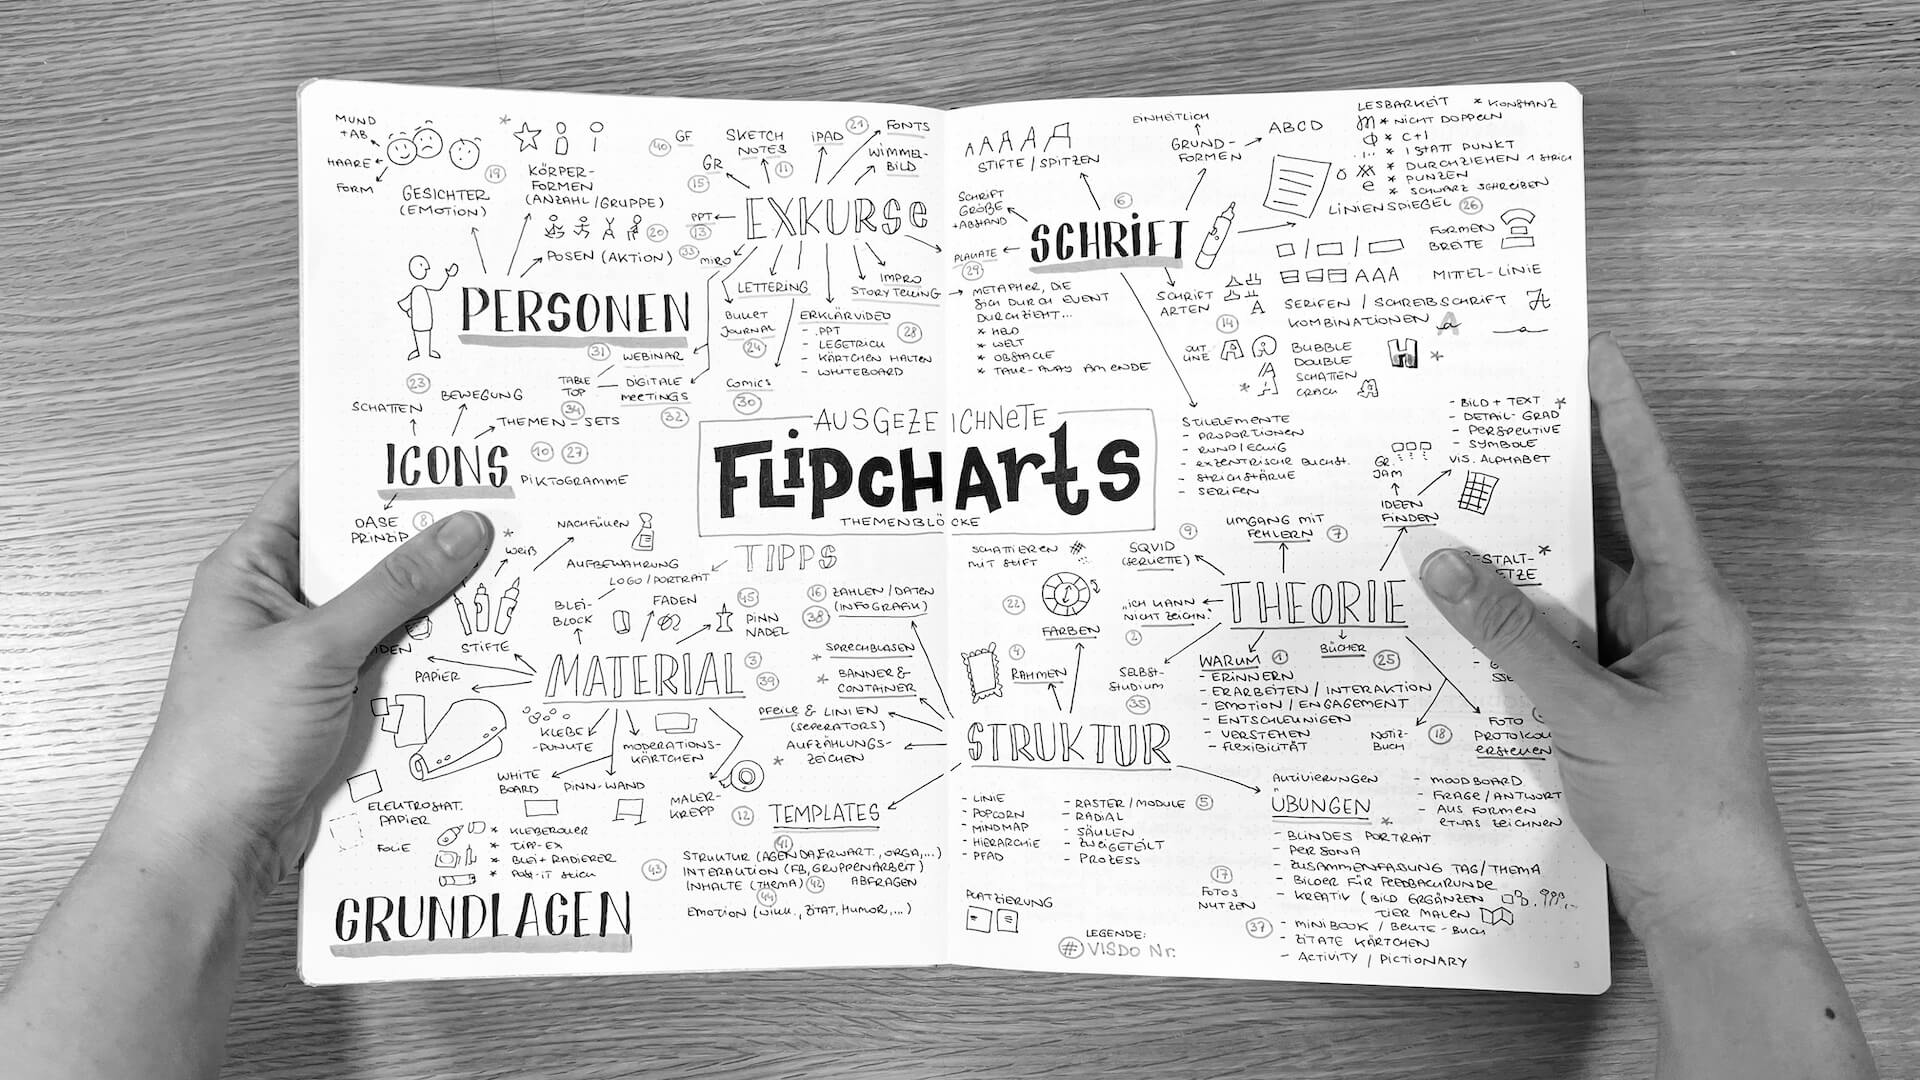 MUND
+AB
HAARE
FORM
19
GESICHTER
(EMOTION)
KÖRPER-
FORMEN
(ANZAHL/GRUPPE)
20
POSEN (AKTION)
PERSONEN
40
GF
SKETCH
NOTES
11
IPAD
21
FONTS
WIMMEL-
BILD
GR
15
PPT
13
EXKURSE
33
MIRO
LETTERING
IMPRO
STORYTELLING
BULLET
JOURNAL
24
ERKLÄRVIDEO
- .PPT
- LEGETRICK
- KÄRTCHEN HALTEN
- WHITEBOARD
28
31
WEBINAR
TABLE
TOP
34
DIGITALE
MEETINGS
32
COMICS
30
METAPHER, DIE
SICH DURCH EVENT
DURCHZIEHT...
* HELD
* WELT
* OBSTACLE
* TAKE-AWAY AM ENDE
23
SCHATTEN
BEWEGUNG
THEMEN-SETS
ICONS
10
27
PIKTOGRAMME
OASE
PRINZIP
8
AUSGEZEICHNETE
FLIPCHARTS
THEMENBLÖCKE
STIFTE/SPITZEN
EINHEITLICH
GRUND-
FORMEN
ABCD
LESBARKEIT
* KONSTANZ
* NICHT DOPPELN
* C+I
* I STATT PUNKT
* DURCHZIEHEN 1 STRICH
* PUNZEN
* SCHWARZ SCHREIBEN
SCHRIFT
GRÖßE
+ABSTAND
6
PLAKATE
29
SCHRIFT
LINIENSPIEGEL
26
FORMEN
BREITE
MITTEL-LINIE
SCHRIFT
ARTEN
14
SERIFEN / SCHREIBSCHRIFT
KOMBINATIONEN
OUT
LINE
BUBBLE
DOUBLE
SCHATTEN
CRACK
STILELEMENTE
- PROPORTIONEN
- RUND/ECKIG
- EXZENTRISCHE BUCHST.
- STRICHSTÄRKE
- SERIFEN
- BILD + TEXT
- DETAIL-GRAD
- PERSPEKTIVE
- SYMBOLE
VIS. ALPHABET
GR.
JAM
IDEEN
FINDEN
TIPPS
NACHFÜLLEN
WEIß
AUFBEWAHRUNG
LOGO/PORTRAIT
BLEI-
BLOCK
FADEN
45
PINN
NADEL
STIFTE
PAPIER
MATERIAL
3
39
KLEBE
-PUNKTE
MODERATIONS-
KÄRTCHEN
WHITE
BOARD
PINN-WAND
MALER-
KREPP
ELEKTROSTAT.
PAPIER
FOLIE
* KLEBEROLLER
* TIPP-EX
* BLEI+RADIERER
* POST-IT STICK
GRUNDLAGEN
16
38
ZAHLEN/DATEN
(INFOGRAFIK)
SPRECHBLASEN
BANNER &
CONTAINER
PFEILE & LINIEN
(SEPERATORS)
AUFZÄHLUNGS-
ZEICHEN
12
TEMPLATES
41
STRUKTUR (AGENDA, ERWART., ORGA,...)
43
INTERAKTION (FB, GRUPPENARBEIT)
INHALTE (THEMA)
42
ABFRAGEN
44
EMOTION (WILLK., ZITAT, HUMOR,...)
SCHATTIEREN
MIT STIFT
22
FARBEN
4
RAHMEN
STRUKTUR
- LINIE
- POPCORN
- MINDMAP
- HIERARCHIE
- PFAD
- RASTER/MODULE
5
- RADIAL
- SÄULEN
- ZWEIGETEILT
- PROZESS
PLATZIERUNG
LEGENDE:
# VISDO Nr.
9
SQVID
(SERVIETTE)
UMGANG MIT
FEHLERN
7
THEORIE
"ICH KANN
NICHT ZEICHN."
2
SELBST-
STUDIUM
35
WARUM
1
- ERINNERN
- ERARBEITEN / INTERAKTION
- EMOTION / ENGAGEMENT
- ENTSCHLEUNIGEN
- VERSTEHEN
- FLEXIBILITÄT
BÜCHER
25
NOTIZ-
BUCH
18
FOTO
ERSTELLEN
AKTIVIERUNGEN
ÜBUNGEN
- MOODBOARD
- FRAGE/ANTWORT
- AUS FORMEN
ETWAS ZEICHNEN
- BLINDES PORTRAIT
- PERSONA
- ZUSAMMENFASSUNG TAG/THEMA
- BILDER FÜR FEEDBACKRUNDE
- KREATIV (BILD ERGÄNZEN
TIER MALEN
17
FOTOS
NUTZEN
37
- MINIBOOK / BEUTE-BUCH
- ZITATE KÄRTCHEN
- ACTIVITY / PICTIONARY
3